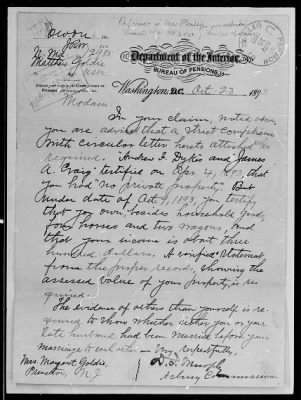 Department of the Interior,
BUREAU OF PENSIONS,
Washington, D.C. Oct 23, 189
Matthew Goldie
Madam
In your claim, noted above,
you are advised that a strict compliance
with circular letter hereto attached is
required. Andrew F. Dykes and "James
A. Craig" testified on Apr 4, 1893, that
you had "no private property". But
under date of Oct 9, 1893, you testify
that you own, besides household goods,
four horses and two wagons, and
that your income is about three
hundred dollars. A verified statement
from the proper records, showing the
assessed value of your property, is re-
quired.
The evidence of others than yourself is re-
quired to show whether either you or your
late husband had been married before your
marriage to each other —
Very respectfully,
D. I. Murphy
Acting Commissioner
Mrs. Margaret Goldie,
Princeton, N.J.